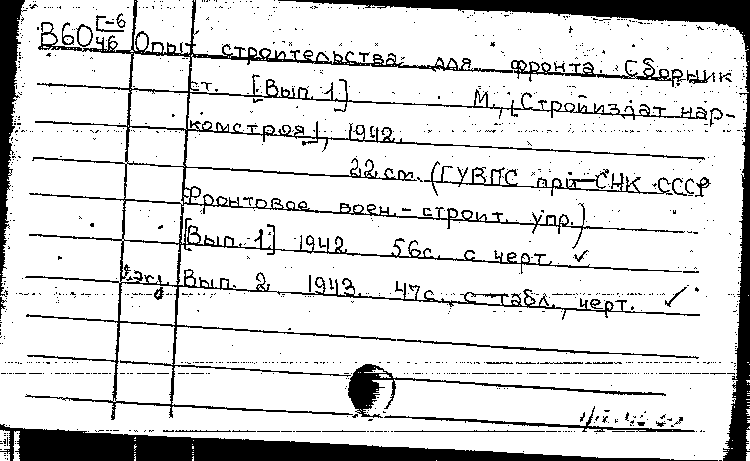 В60 [-6 / 46 Опыт строительства для фронта. Сборник
ст. [Вып. 1] М., [Стройиздат нар-
комстроя], 1942.
22 см. (ГУВПС при СНК СССР
Фронтовое воен.-строит. упр.)
[Вып. 1] 1942 56с. с черт. ✓
2 экз. Вып. 2 1943. 47с., с табл., черт. ✓